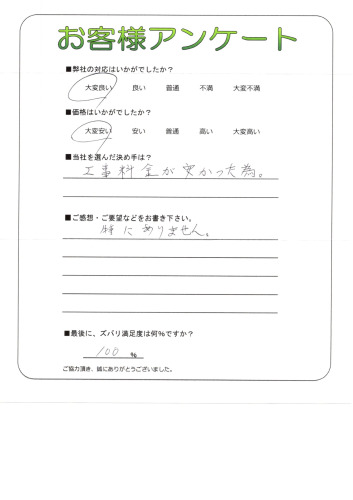 お客様アンケート
■弊社の対応はいかがでしたか？
大変良い 良い 普通 不満 大変不満
■価格はいかがでしたか？
大変安い 安い 普通 高い 大変高い
■当社を選んだ決め手は？
工事料金が安かった為。
■ご感想・ご要望などをお書き下さい。
特にありません。
■最後に、ズバリ満足度は何％ですか？
100 ％
ご協力頂き、誠にありがとうございました。